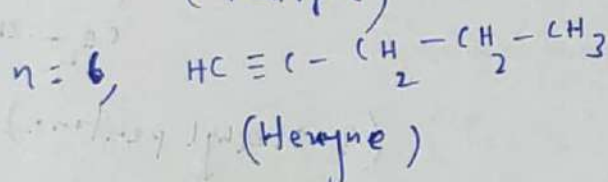 n = 6, HC ≡ C - CH₂ - CH₂ - CH₃
(Hexyne)